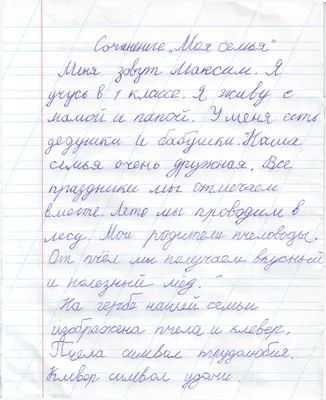 Сочинение „Моя семья"
Меня зовут Максим. Я
учусь в 1 классе. Я живу с
мамой и папой. У меня есть
дедушки и бабушки. Наша
семья очень дружная. Все
праздники мы отмечаем
вместе. Лето мы проводим в
лесу. Мои родители пчеловоды.
От пчёл мы получаем вкусный
и полезный мёд.
На гербе нашей семьи
изображена пчела и клевер.
Пчела символ трудолюбия.
Клевер символ удачи.